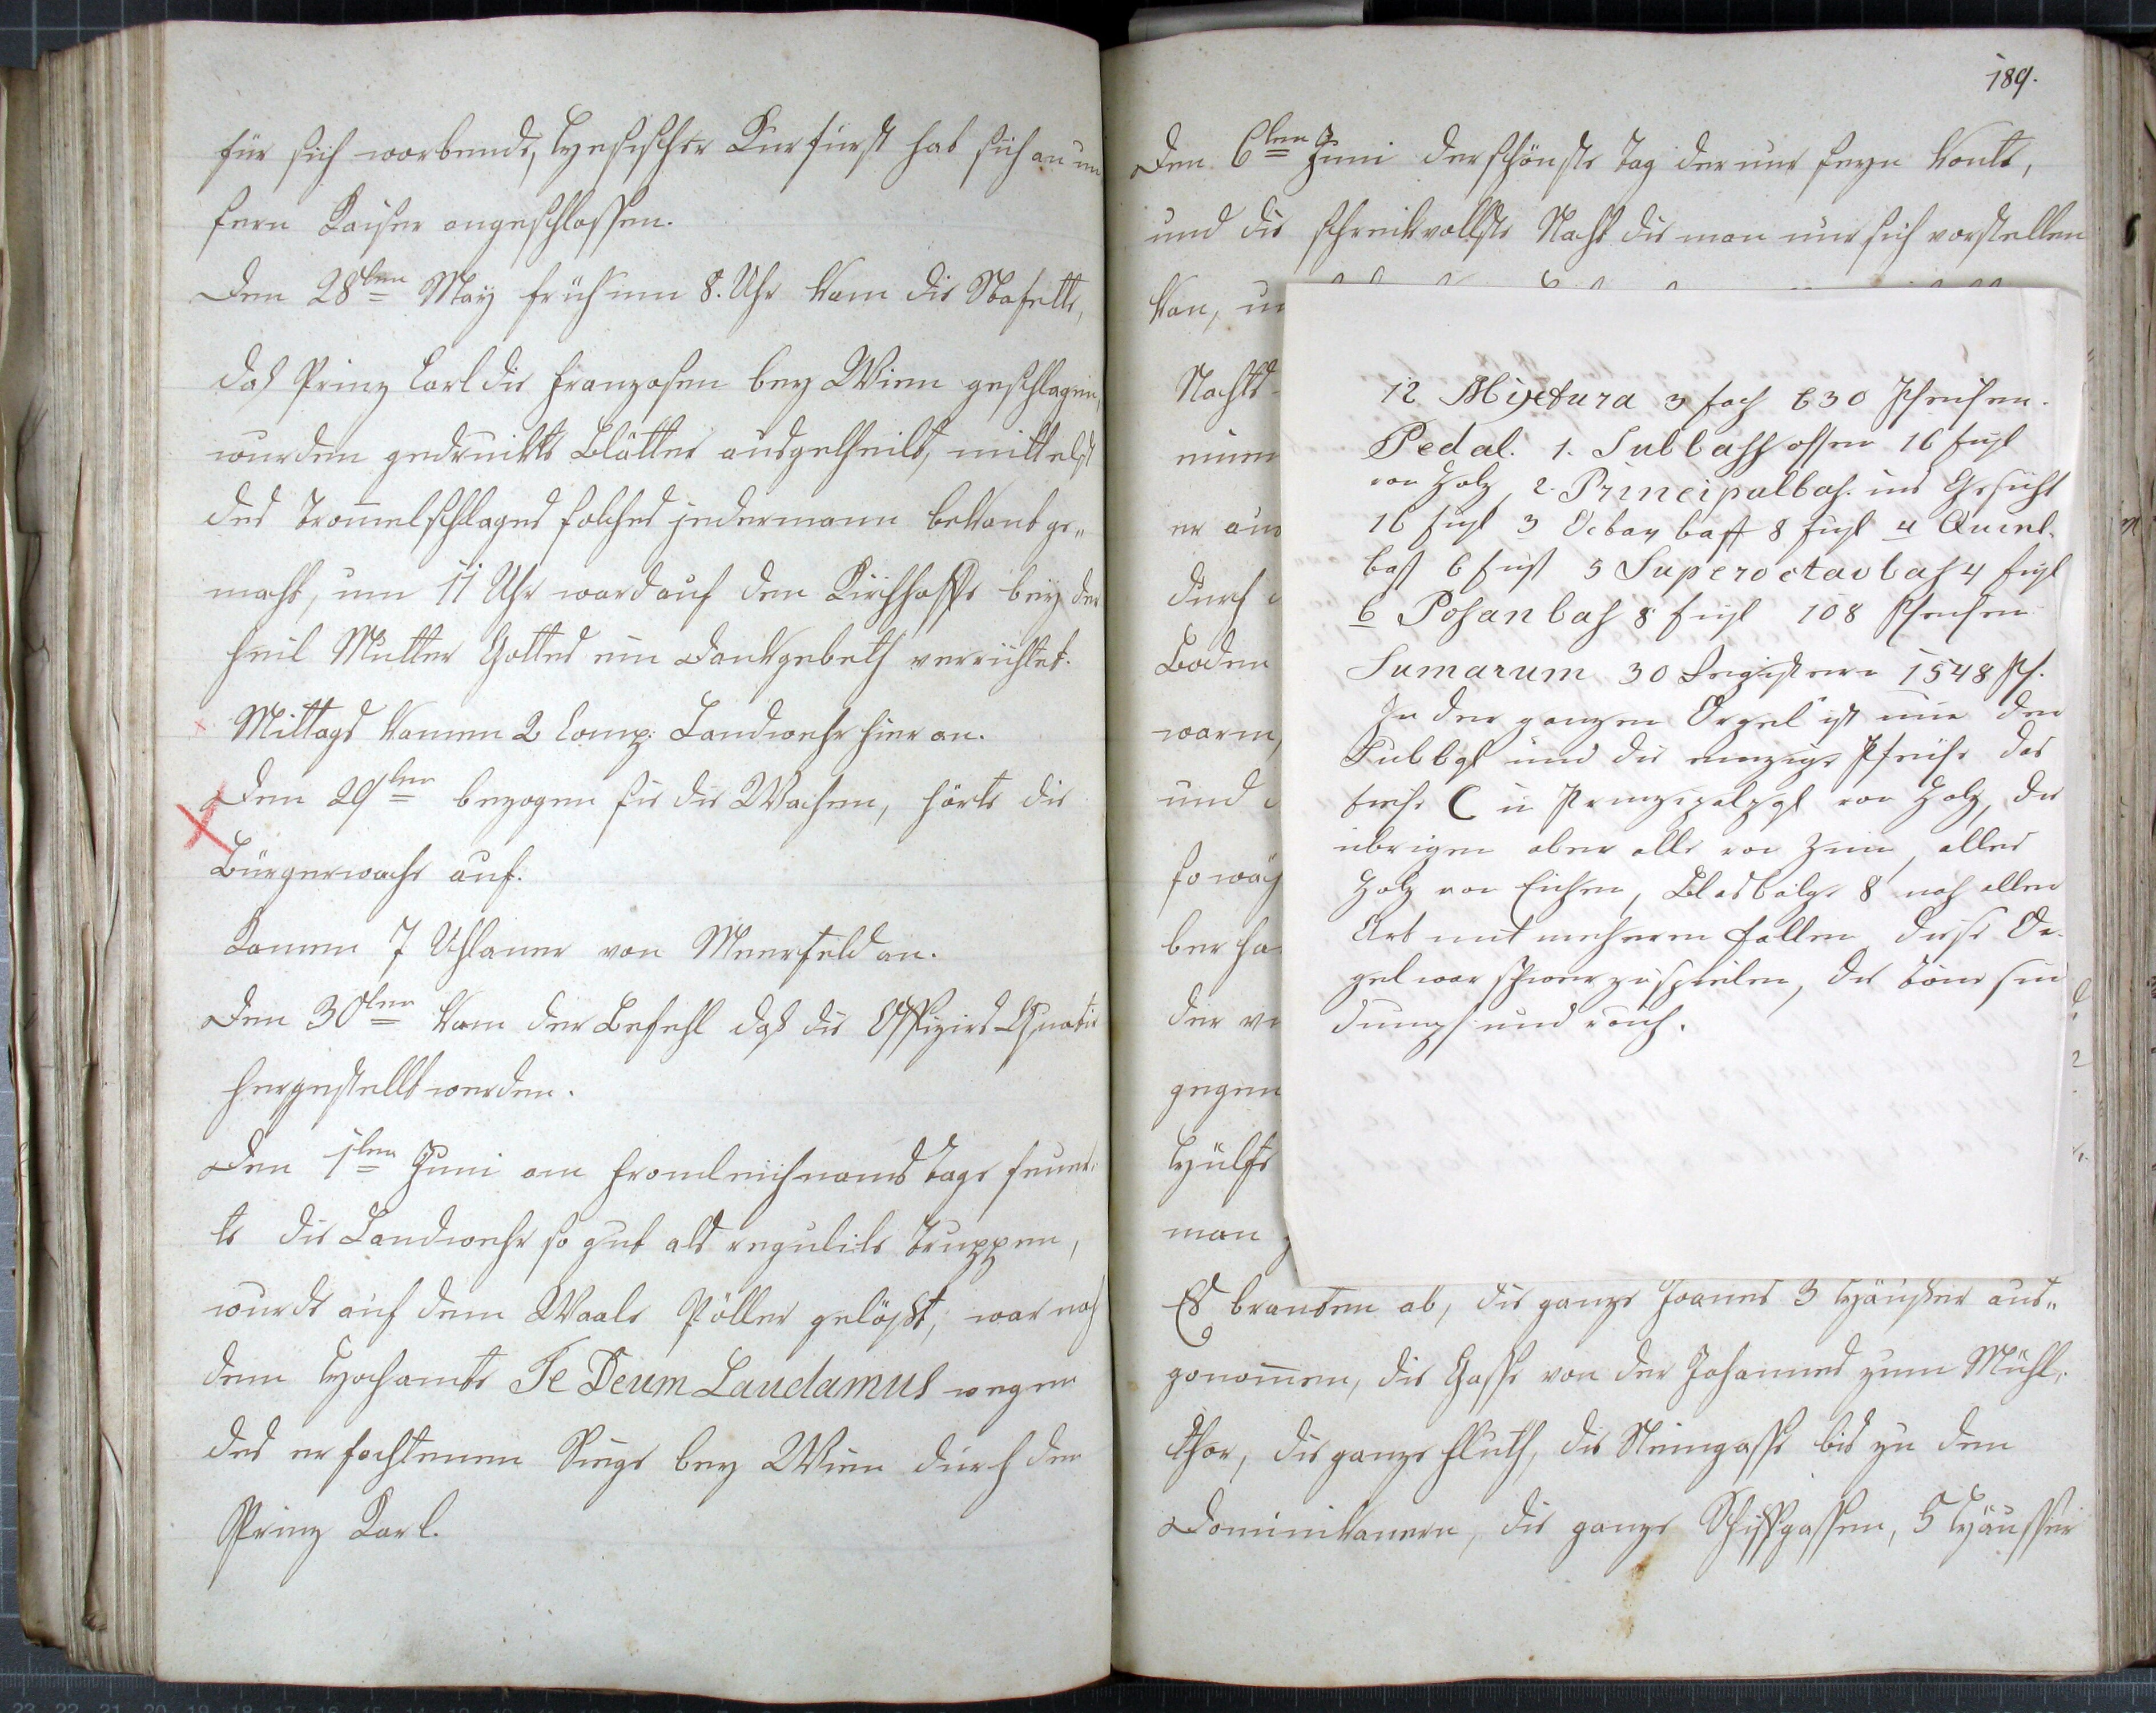 für sich werbende, Hessischer Kurfürst hat sich an un
sern Kaiser angeschlossen.
Den 28ten May früh um 8. Uhr kam die Stafette,
daß Prinz Carl die Franzosen bey Wien geschlagen,
wurden gedruckte Blätter ausgetheilt, mittelst
des Trom̄elschlages solches jedermann bekant ge„
macht, um 11 Uhr ward auf den Kirchhoffe bey der
heil Mutter Gottes ein Dankgebeth verrichtet.
Mittags kamen 2 Comp: Landwehr hier an.
Den 29ten bezogen sie die Wachen, hörte die
Bürgerwache auf.
Kamen 7 Uhlaner von Meerfeld an.
Den 30ten kam der Befehl daß die Offiziers Quatir
hergestellt werden.
Den 1ten Juni am Fronleichnams Tage feuer„
te die Landwehr so gut als regulirte Truppen,
wurde auf dem Waale Pöller gelößt, war nach
dem Hochamte Te Deum Laudamus wegen
des erfochtenen Siegs bey Wien durch den
Prinz Karl.
189.
Den 6ten Juni der schönste Tag der nur seyn konte,
und die schreckvollste Nacht die man nur sich vorstellen
kan, un
Nachts
einen
er aus
durch
Boden
warm,
und
so wäh
ber ha
der
gegen
Hülfe
man
12 Mixtura 3 fach 630 Pfeifen.
Pedal. 1. Subbass offen 16 fuß
von Holz, 2. Principalbaß. ins Gesicht
16 fuß 3 Octav bass 8 fuß 4 Quint.
baß 6 fuß 5 Superoctavbaß 4 fuß
6 Posanbaß 8 fuß 108 Pfeifen
Sumarum 30 Registern 1548 Pf.
In der ganzen Orgel ist nur der
Subbaß und die einzige Pfeife das
tiefe C in Prinzipalbaß von Holz, die
übrigen aber alle von Zinn, alles
Holz von Eichen, Blasbälge 8 nach alter
Art mit mehreren Falten diese Or-
gel war schwer zu spielen, die Töne sin
dumpf und rauh.
Es branten ab, die ganze Joanes 3 Häußer aus„
genom̄en, die Gasse von der Johannes zum Mühl„
thor, die ganze Fluth, die Steingasse bis zu den
Dominikanern, die ganze Schiffgassen, 5 Häusser